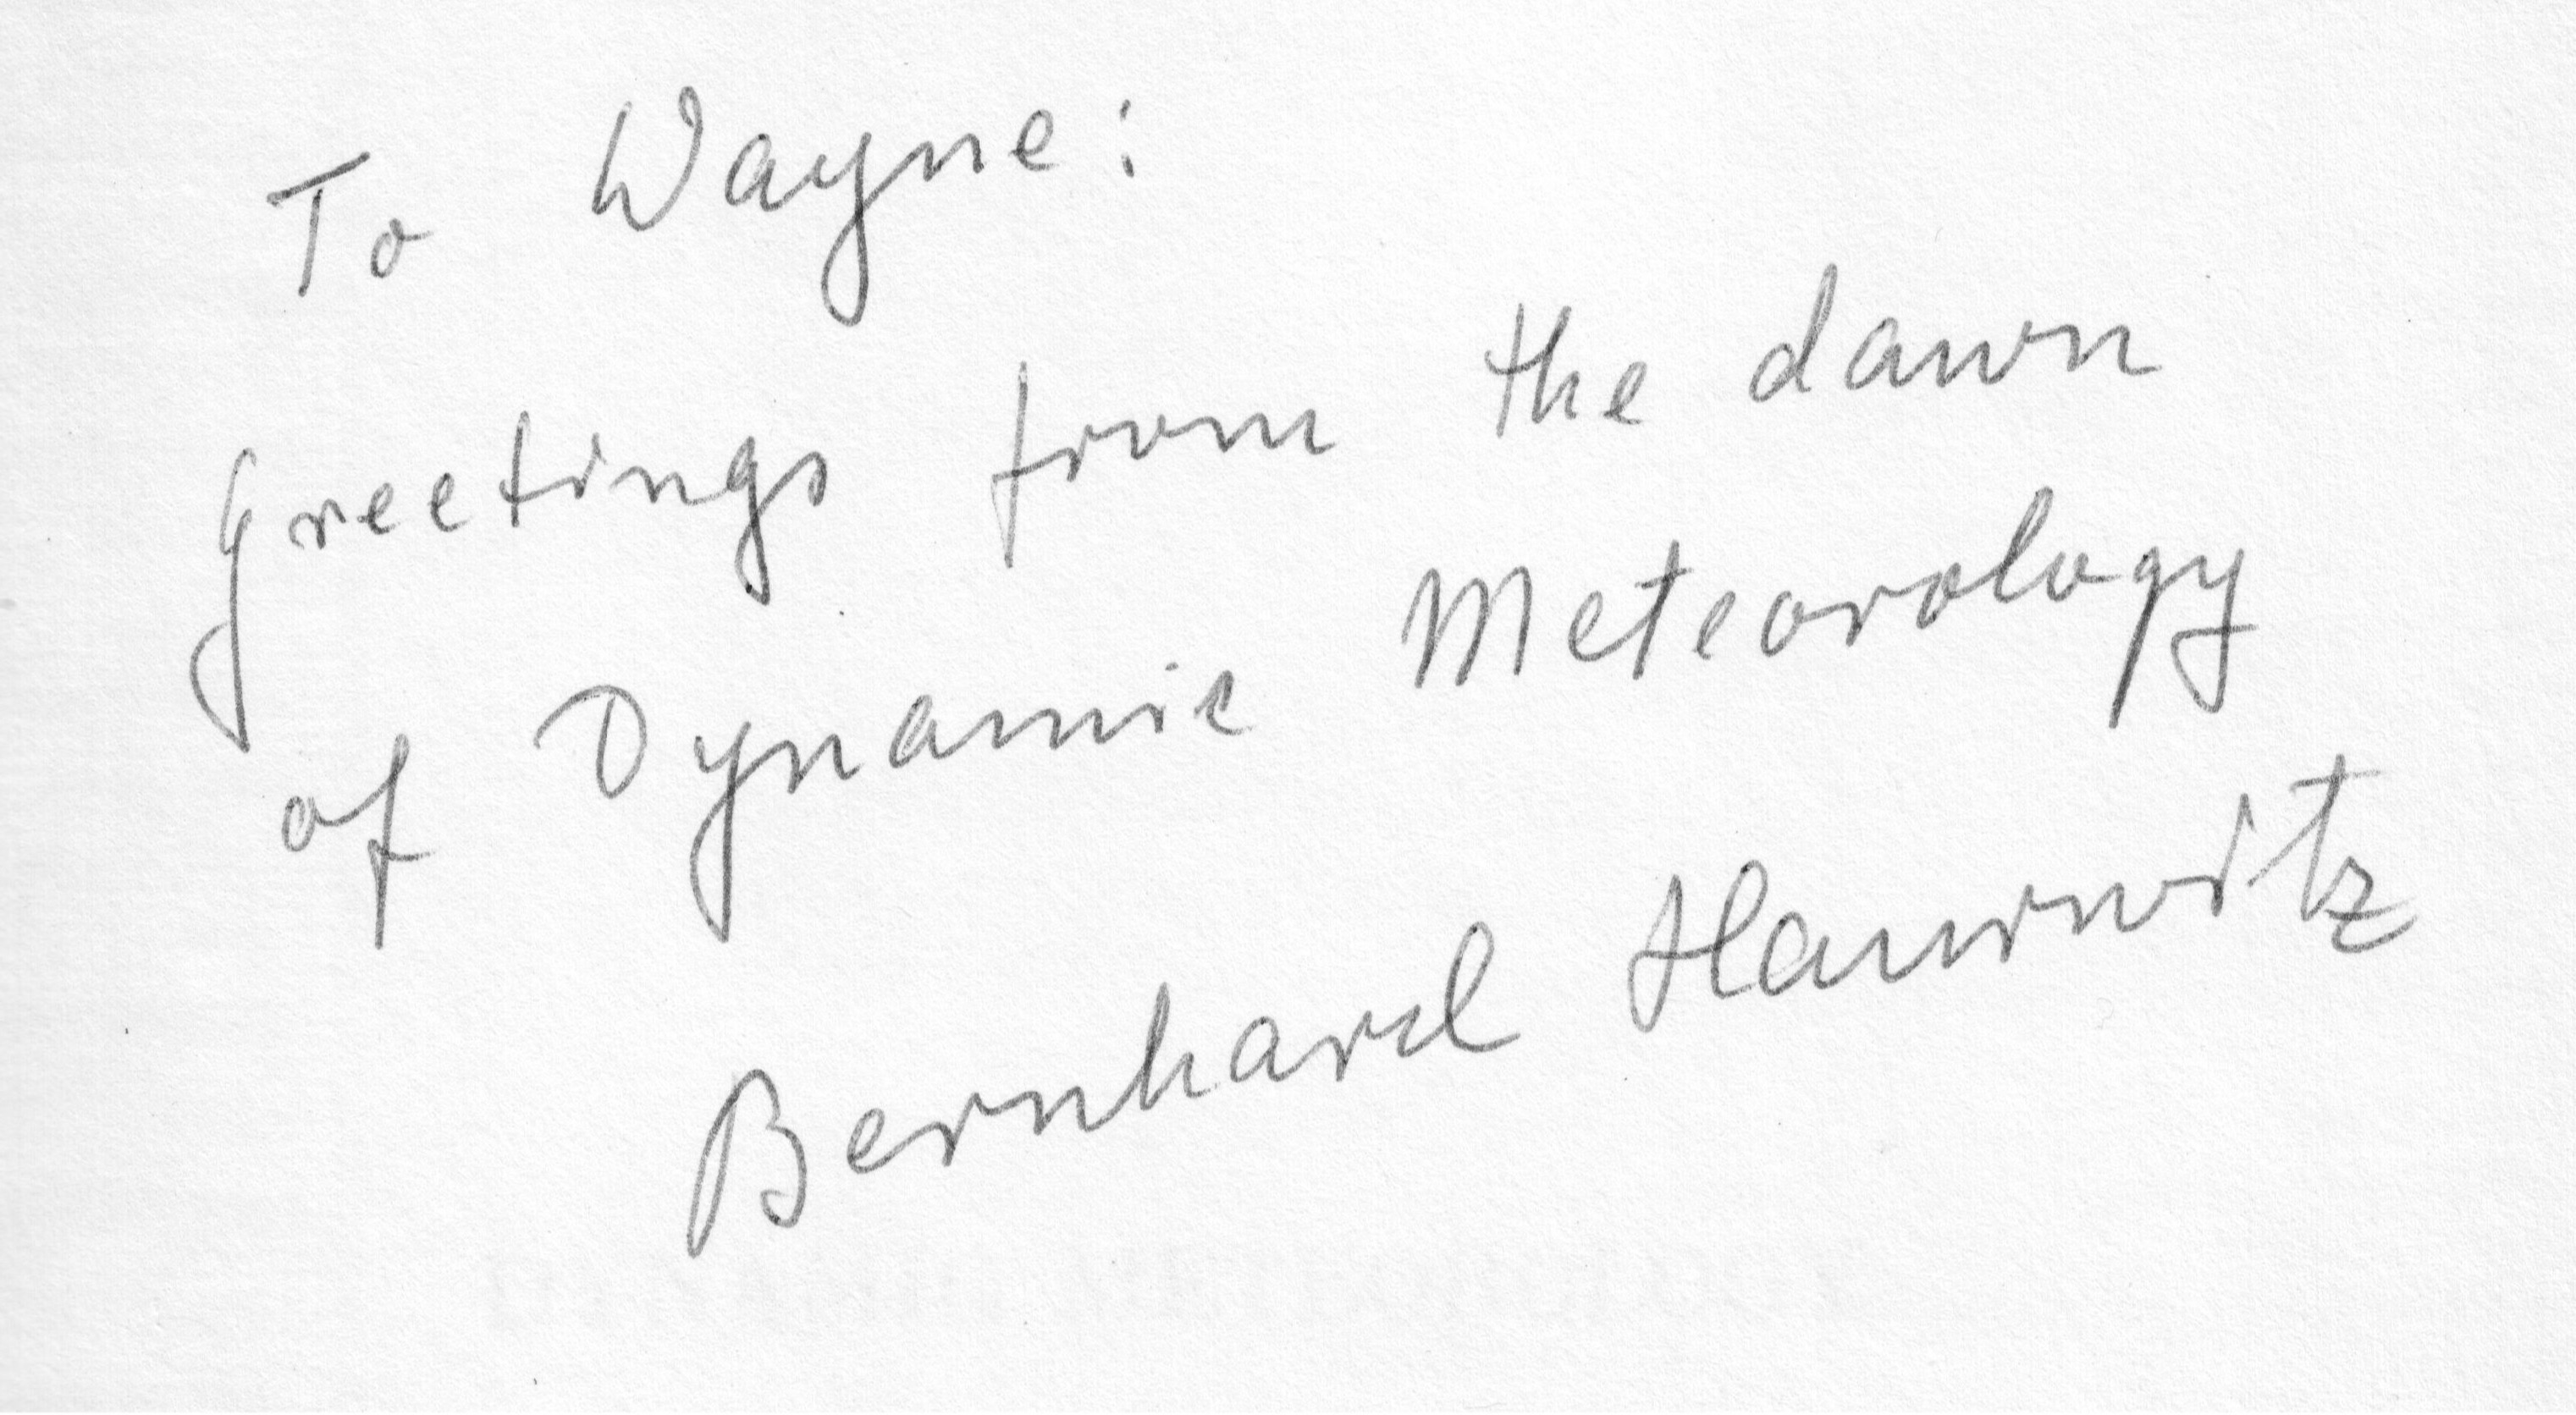 To Wayne:
Greetings from the dawn
of Dynamic Meteorology
Bernhard Haurwitz